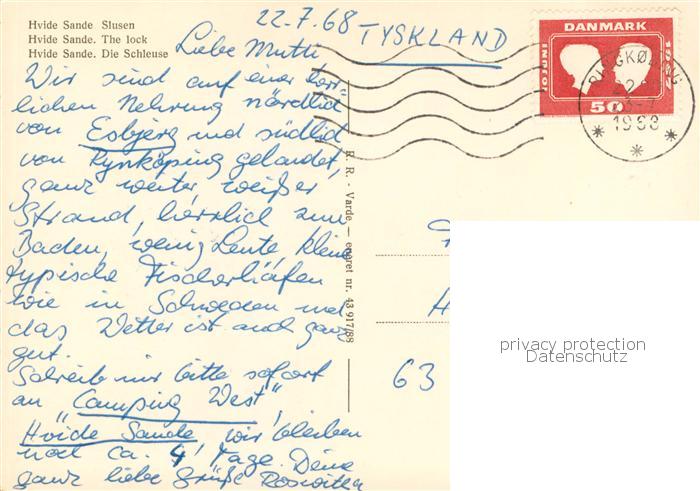 Hvide Sande Slusen
Hvide Sande. The lock
Hvide Sande. Die Schleuse
22.7.68
TYSKLAND
Liebe Mutti
Wir sind auf einer herr-
lichen Nehrung nördlich
von Esbjerg und südlich
von Rynköping gelandet,
ganz weiter, weißer
Strand, herrlich zum
Baden, wenig Leute, kleine
typische Fischerhäfen
wie in Schweden und
das Wetter ist auch ganz
gut.
Schreib mir bitte sofort
an "Camping West",
Hvide Sande, wir bleiben
noch ca. 4 Tage. Deine
ganz liebe Grüße Roswitha
R. R. - Varde - eneret nr. 43 917/88
DANMARK
10 JUNI 1967
50
RINGKØBING
22
1968
63
privacy protection
Datenschutz